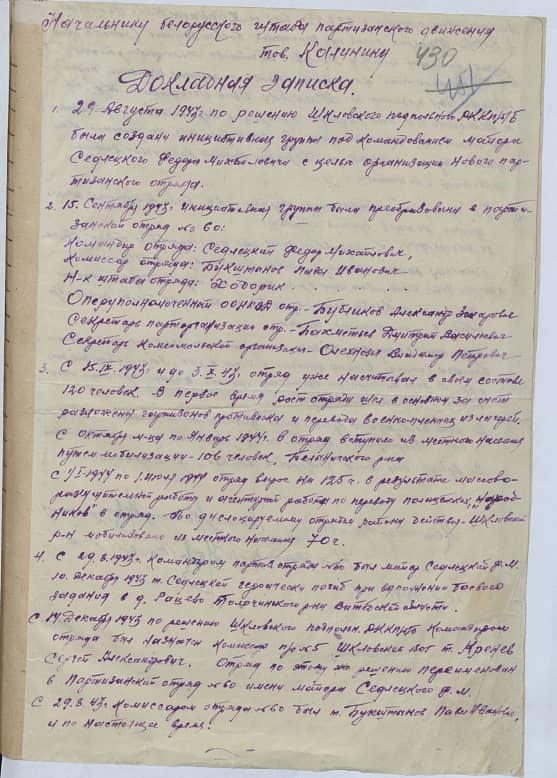 Начальнику белорусского штаба партизанского движения
тов. Калинину
430
Докладная записка.
1. 29 Августа 1943г. по решению Шкловского подпольного РККП/б/Б
была создана инициативная группа под командованием майора
Седлецкого Федора Михайловича с целью организации нового пар-
тизанского отряда.
2. 15. Сентября 1943г. инициативная группа была преобразована в парти-
занский отряд № 60:
Командир отряда: Седлецкий Федор Михайлович,
Комиссар отряда: Букштынов Павел Иванович
Н-к штаба отряда: Хоборин
Оперуполномоченный ООНКВД отр. - Бубликов Александр Захарович
Секретарь парторганизации отр. - Бахметьев Дмитрий Васильевич
Секретарь Комсомольской организации - Владимир Петрович
3. С 15.IX.1943г. и до 3.X.43г. отряд уже насчитывал в своем составе
120 человек. В первое время рост отряда шел в основном за счет
разложения гарнизонов противника и перевода военнопленных из лагерей.
С октября м-ца по Январь 1944г. в отряд вступило из местного населения
путем мобилизации - 106 человек, Белыничского р-на
С 1/I-1944 по 1. июля 1944 отряд вырос на 125 ч. в результате массово-
разъяснительной работы и агентурной работы по переводу полицейских, "Народ-
ников" в отряд. По дислоцируемому отрядом району действия - Шкловский
р-н мобилизовано из местного населения 70 ч.
4. С 29.8.1943г. Командиром партиз. отряда №60 был майор Седлецкий Ф.М.
10. декабря 1943 т. Седлецкий героически погиб при выполнении боевого
задания в д. Рацево Толочинского р-на Витебской области.
С 14 Декабря 1943 по решению Шкловского подпольн. РККП/б/Б Командиром
отряда был назначен комиссар п/о №5 Шкловской ВОГ т. Аренев
Сергей Александрович. Отряд по этому же решению переименован
в Партизанский отряд №60 имени майора Седлецкого Ф.М.
С 29.8.43г. Комиссаром отряда №60 был т. Букштынов Павел Иванович,
и по настоящее время.